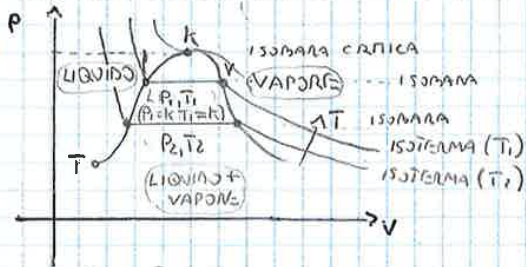 P
K
ISOBARA CRITICA
LIQUIDO
L
V
VAPORE
ISOBARA
P₁, T₁
(P₁=K T₁=K)
↑T
ISOBARA
P₂, T₂
ISOTERMA (T₁)
T
ISOTERMA (T₂)
LIQUIDO +
VAPORE
V